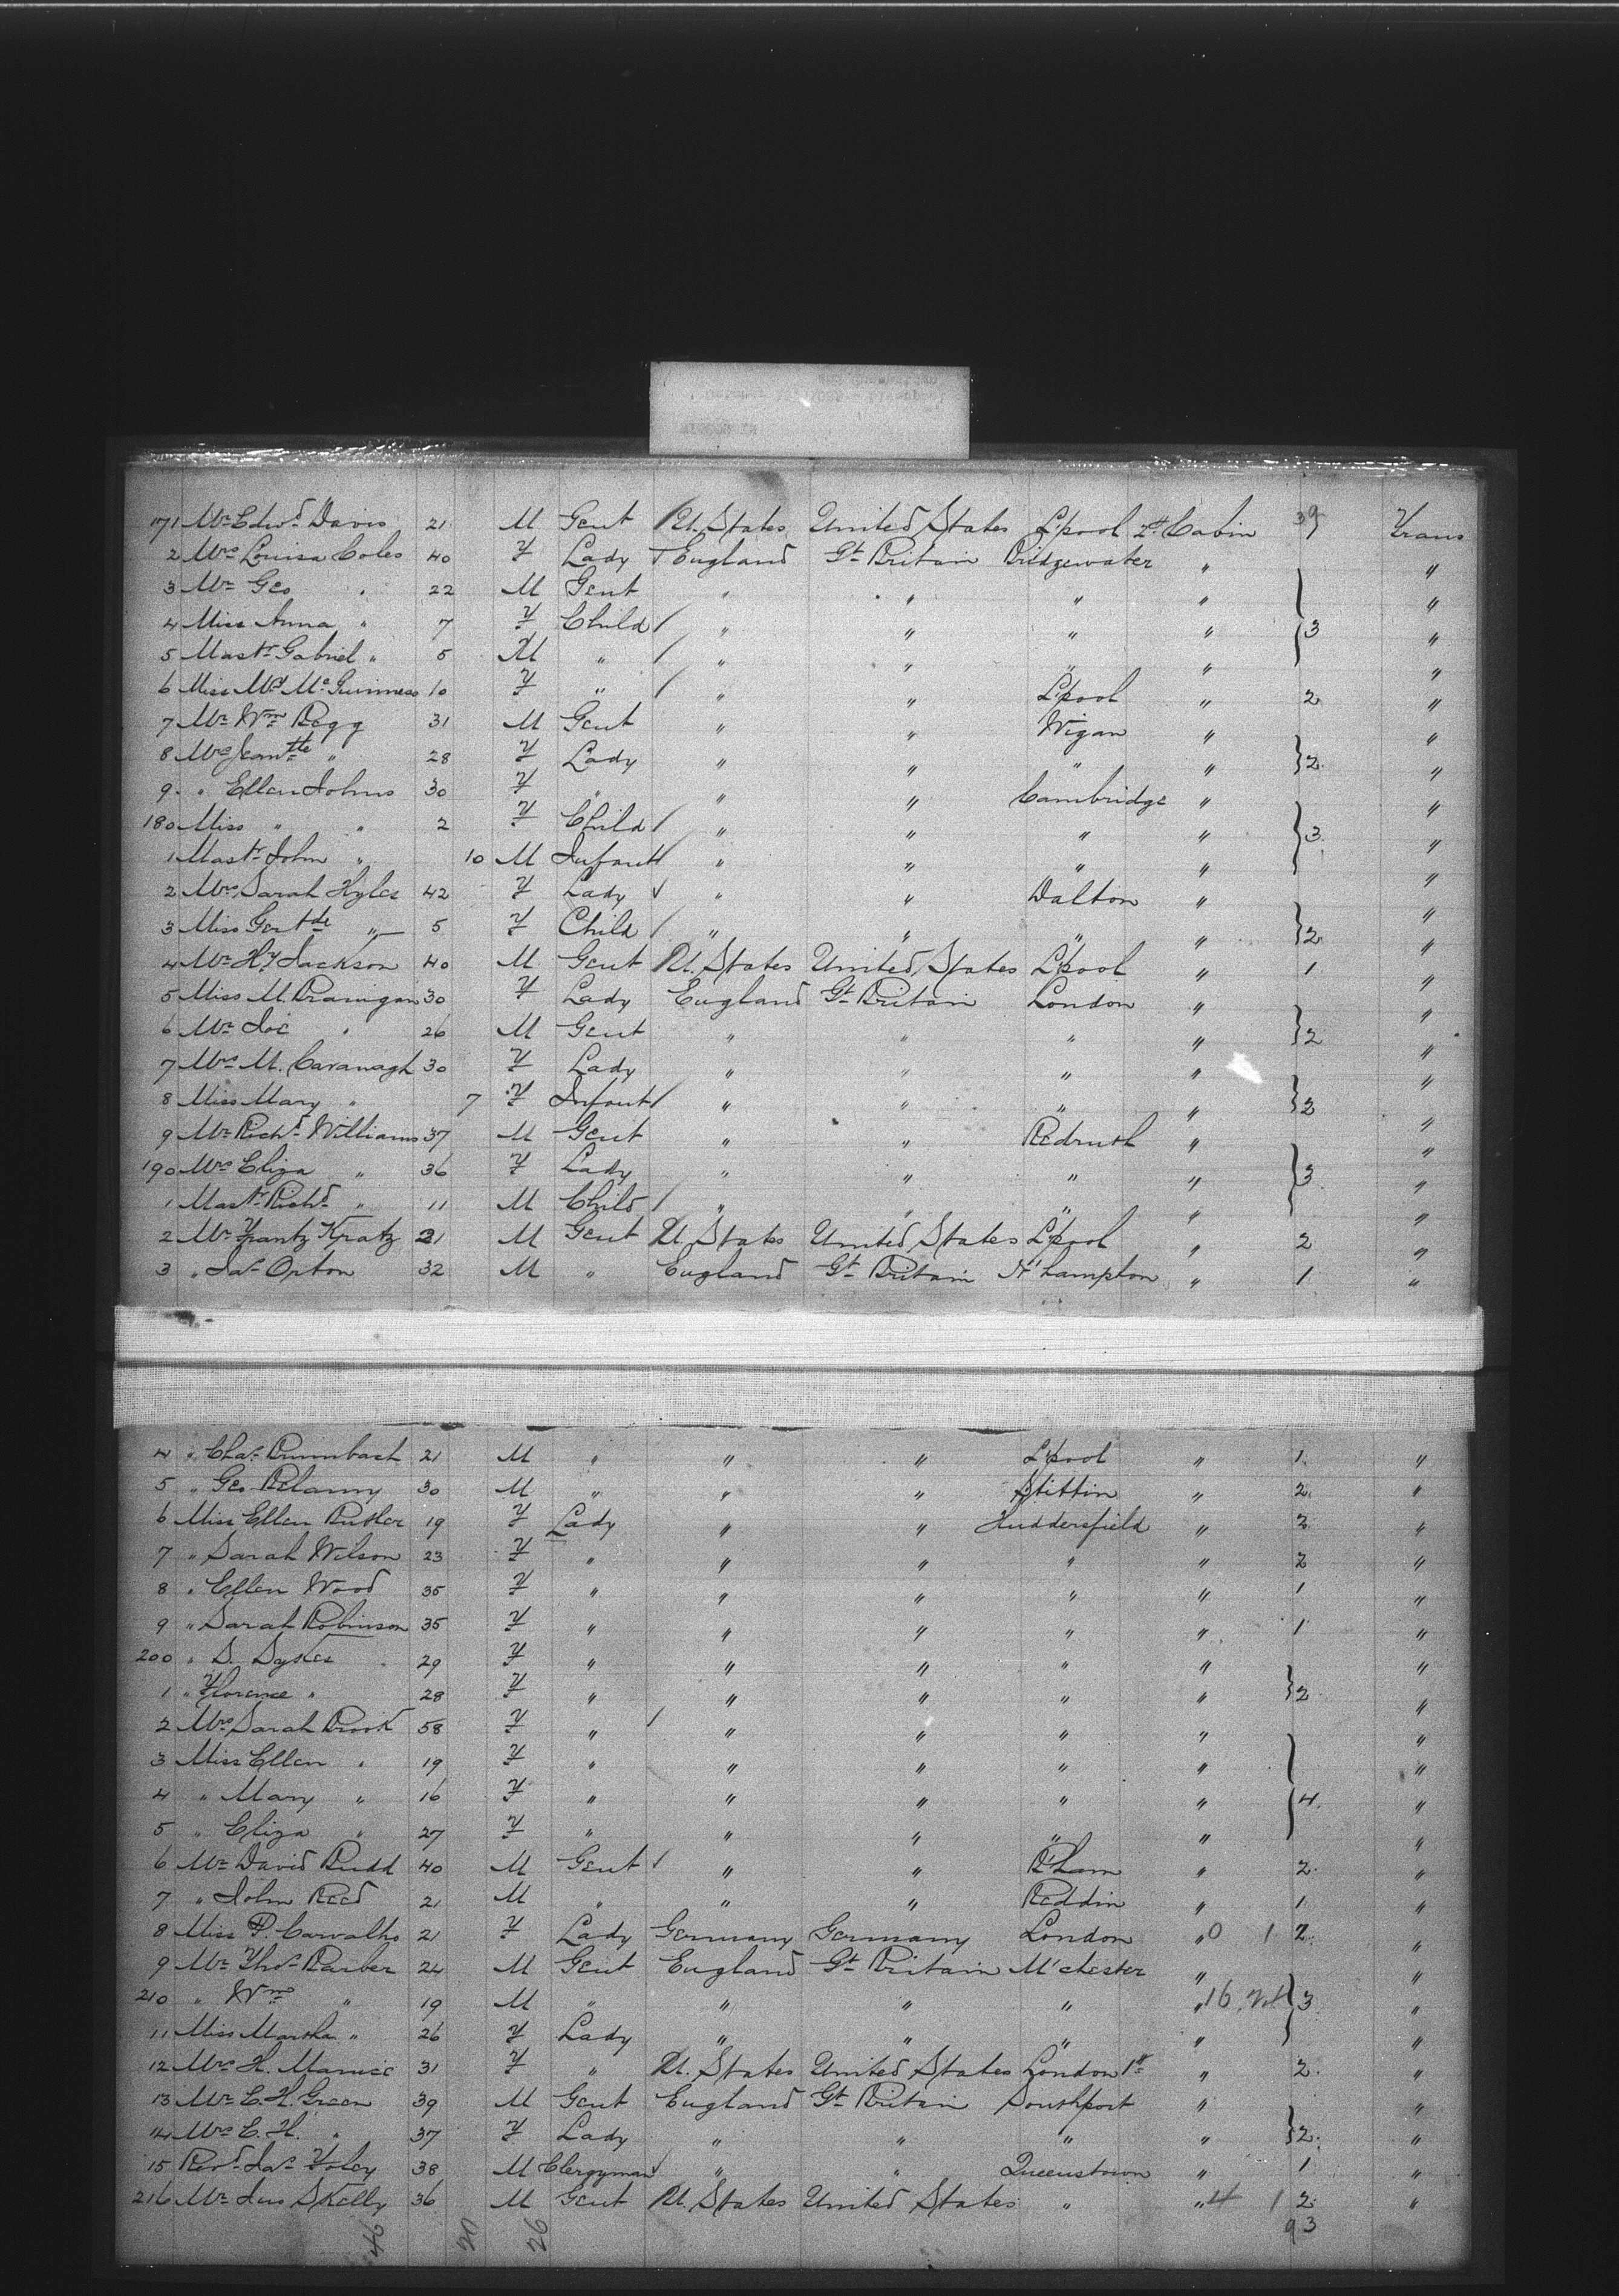 171 Mr Edwd Davis 21 M Gent U. States United States L'pool 2d Cabin 39 Trans
2 Mrs Louisa Coles 40 F Lady England Gt Britain Bridgewater " "
3 Mr Geo " 22 M Gent " " " " "
4 Miss Anna " 7 F Child / " " " " 3 "
5 Mastr Gabriel " 5 M " / " " " " "
6 Miss Md McGuinness 10 F " / " " L'pool " 2 "
7 Mr Wm Bogg 31 M Gent " " Wigan " "
8 Mrs Jeantte " 28 F Lady " " " " 2 "
9 " Ellen Johns 30 F " " " Cambridge " "
180 Miss " " 2 F Child / " " " " 3 "
1 Mastr John " 10 M Infant / " " " " "
2 Mrs Sarah Hyles 42 F Lady " " Dalton " "
3 Miss Gertde " 5 F Child / " " " " 2 "
4 Mr Hy Jackson 40 M Gent U. States United States L'pool " 1 "
5 Miss M. Branigan 30 F Lady England Gt Britain London " "
6 Mr Joe " 26 M Gent " " " " 2 "
7 Mrs M. Cavanagh 30 F Lady " " " " "
8 Miss Mary " 7 F Infant / " " " " 2 "
9 Mr Richd Williams 37 M Gent " " Redruth " "
190 Mrs Eliza " 36 F Lady " " " " 3 "
1 Mastr Richd " 11 M Child / " " " " "
2 Mr Frantz Kratz 21 M Gent U. States United States L'pool " 2 "
3 " Jas Orton 32 M " England Gt Britain N'hampton " 1 "
4 " Chas Brumbach 21 M " " " L'pool " 1 "
5 " Geo 30 M " " " Stittin " 2 "
6 Miss Ellen Butler 19 F Lady " " Huddersfield " 2 "
7 " Sarah Wilson 23 F " " " " " 2 "
8 " Ellen Wood 35 F " " " " " 1 "
9 " Sarah Robinson 35 F " " " " " 1 "
200 " S. Sykes 29 F " " " " " "
1 " Florence " 28 F " " " " " 2 "
2 Mrs Sarah Brook 58 F " / " " " " "
3 Miss Ellen " 19 F " " " " " "
4 " Mary " 16 F " " " " " 4 "
5 " Eliza " 27 F " " " " " "
6 Mr David Budd 40 M Gent / " " B'ham " 2 "
7 " John Reed 21 M " " " Reddin " 1 "
8 Miss P. Carvalho 21 F Lady Germany Germany London " 0 1 2 "
9 Mr Thos Barber 24 M Gent England Gt Britain M'chester " "
210 " Wm " 19 M " " " " " 16 3 "
11 Miss Martha " 26 F Lady " " " " "
12 Mrs H. 31 F " U. States United States London 1st " 2 "
13 Mr E. H. Green 39 M Gent England Gt Britain Southport " "
14 Mrs E. H. " 37 F Lady " " " " 2 "
15 Revd Jas Foley 38 M Clergyman " " Queenstown " 1 "
216 Mr Jno Skelly 36 M Gent U. States United States " " 4 1 2 "
46 20 26 93